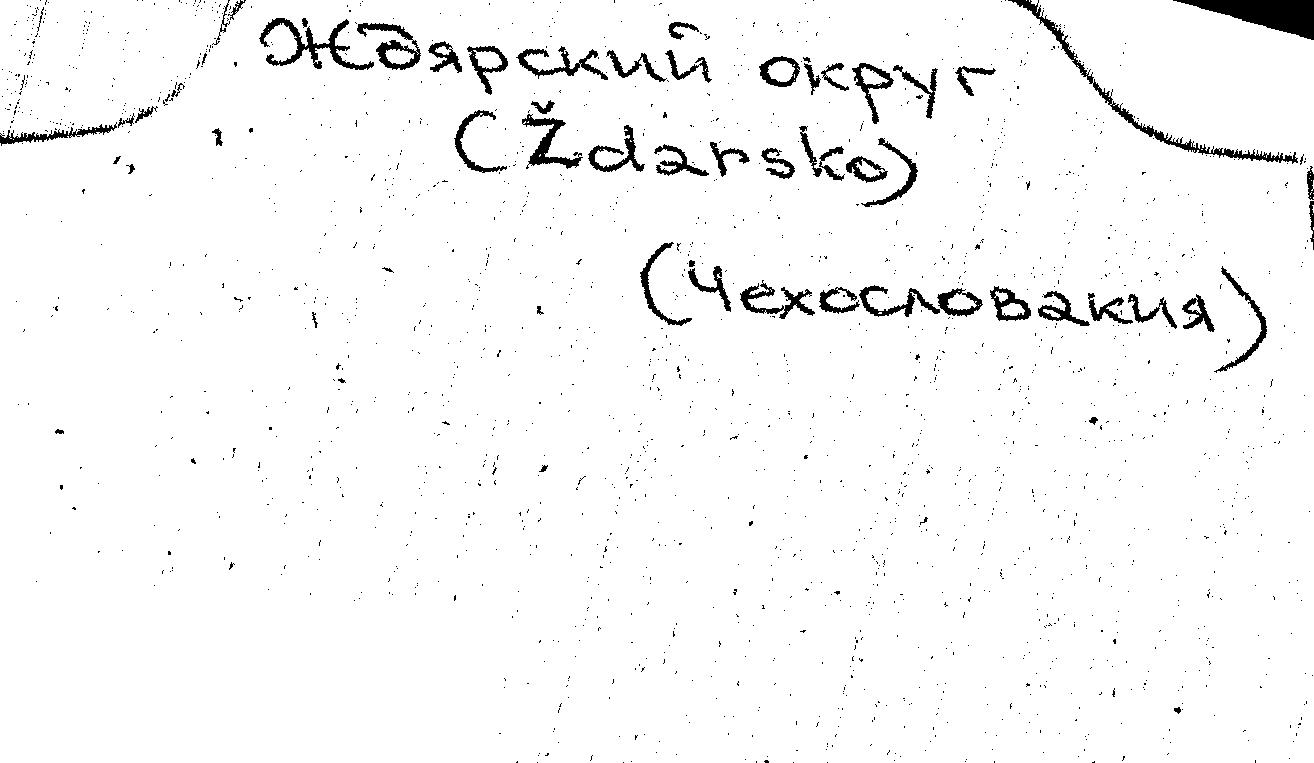 Ждярский округ
(Ždarsko)
(Чехословакия)